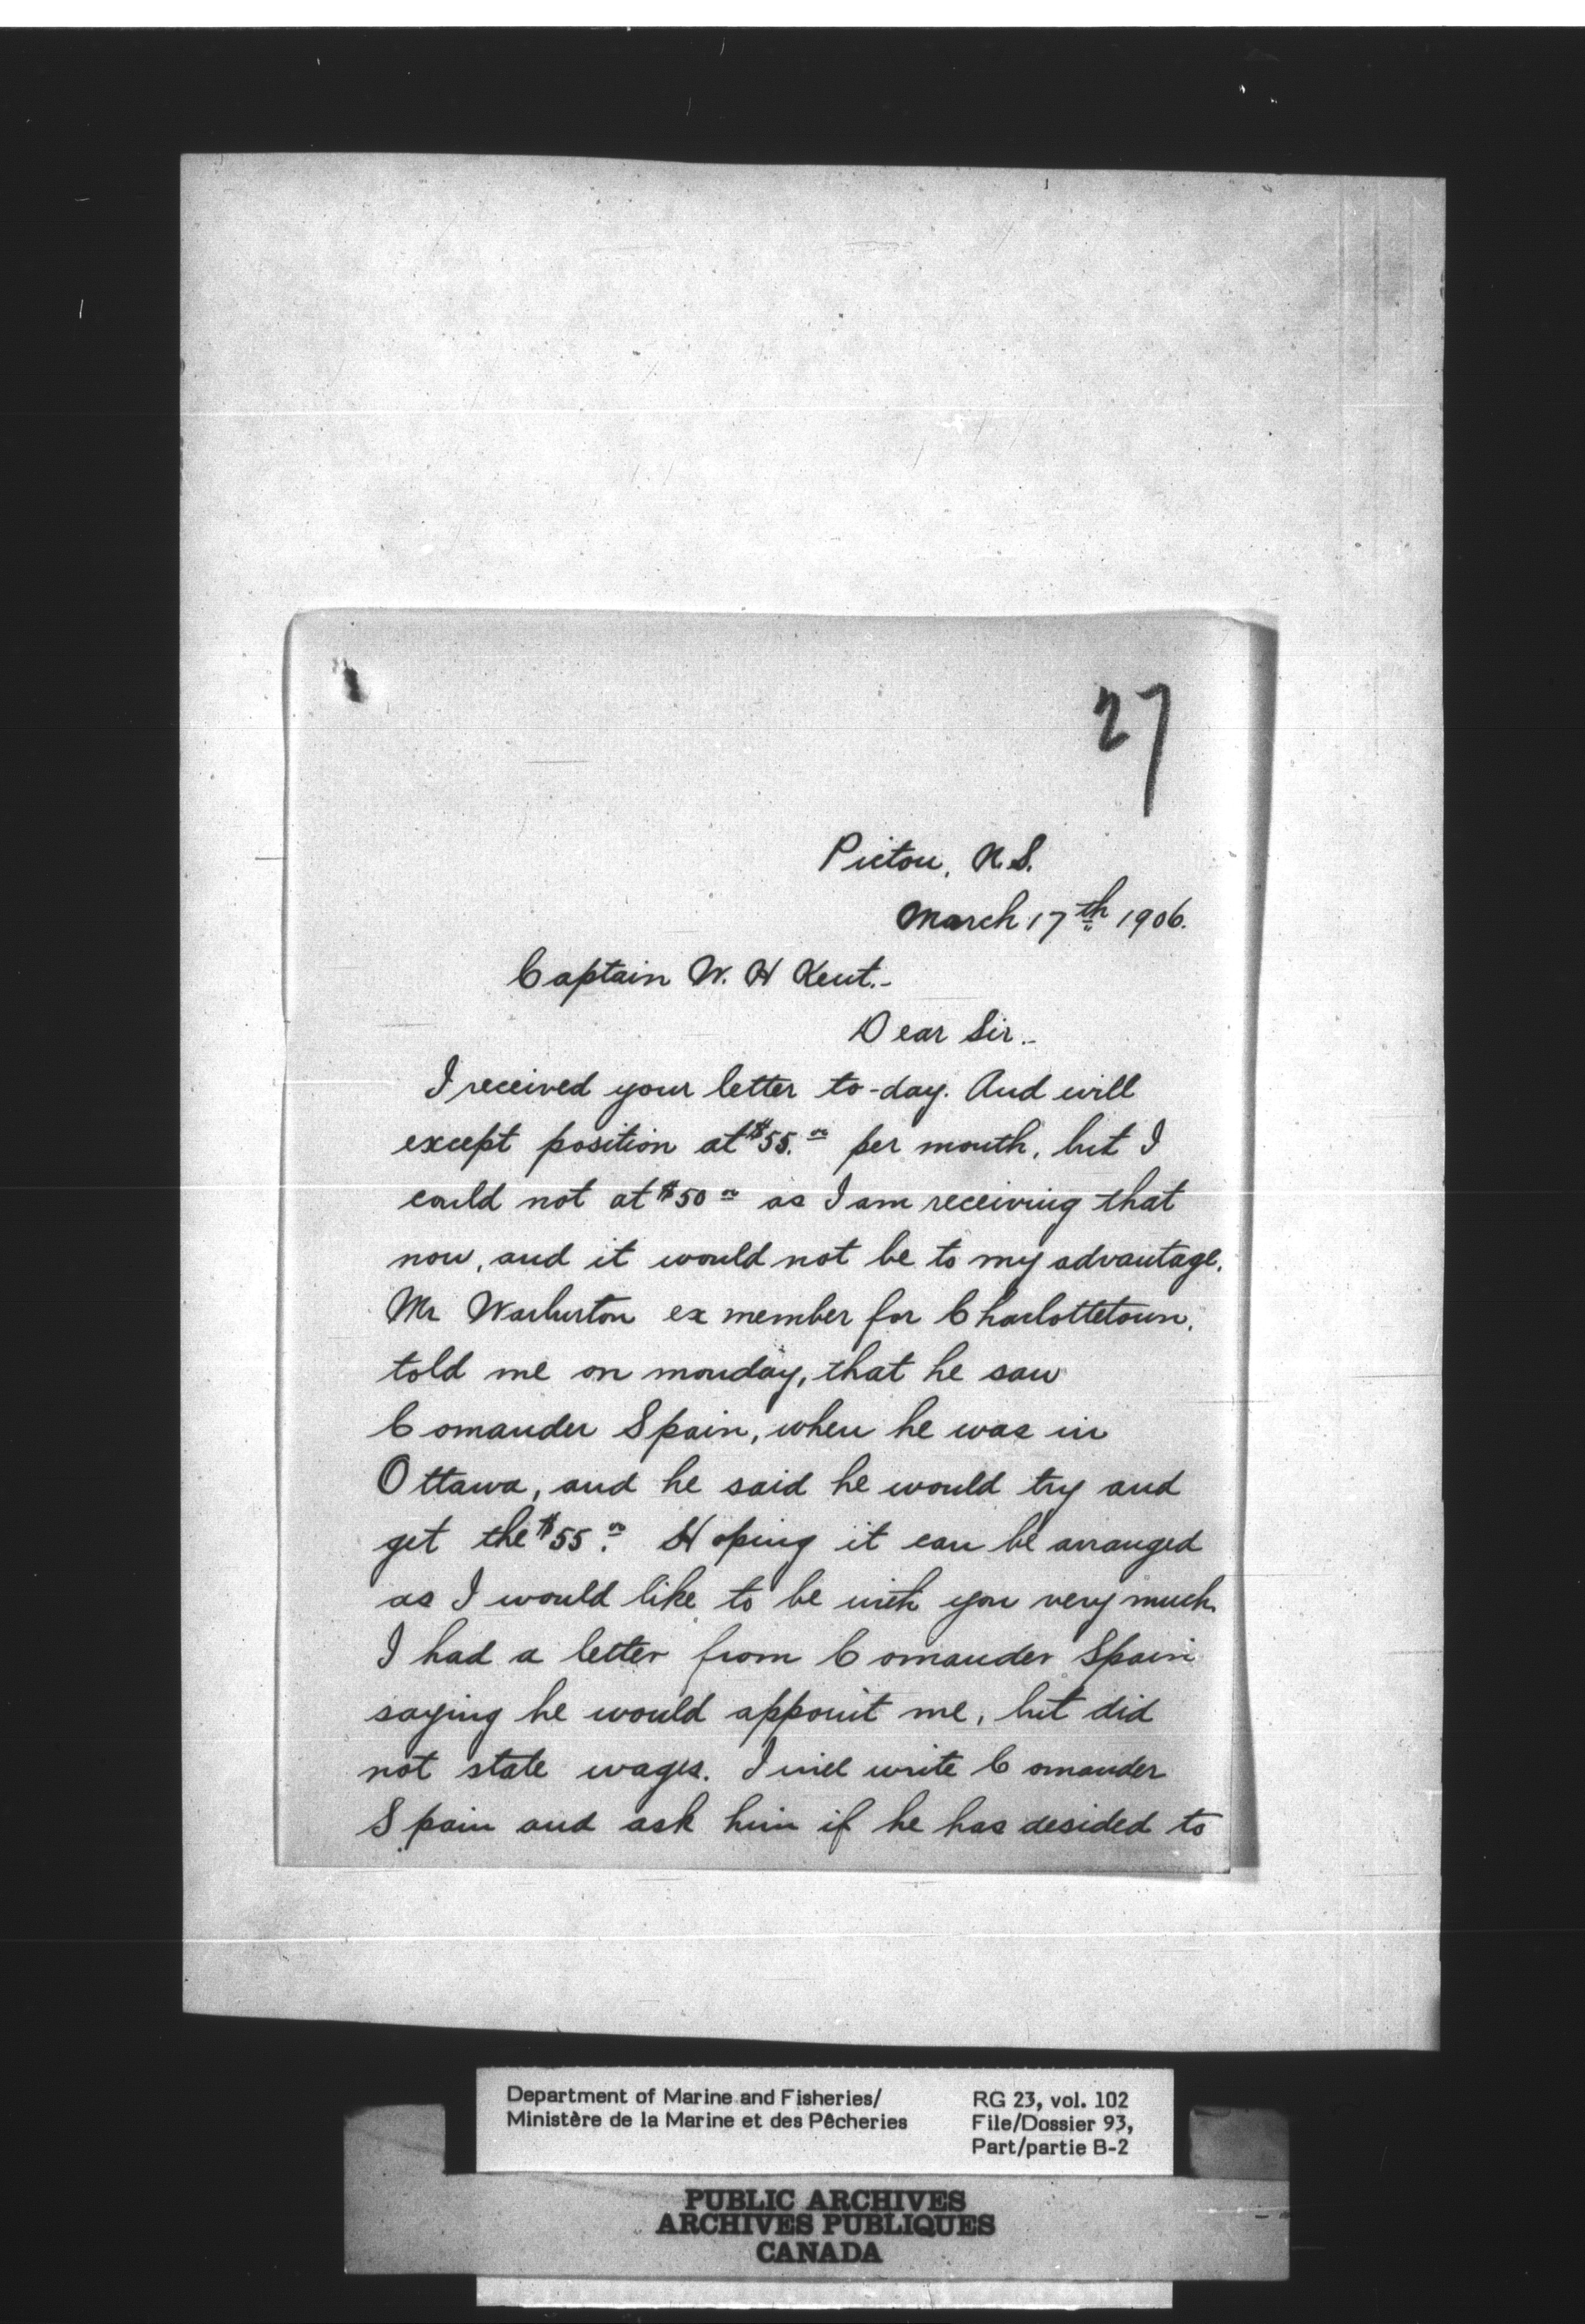 27
Pictou, N.S.
March 17th 1906.
Captain W. H Kent.-
Dear Sir.-
I received your letter to-day. And will
except position at $55.00 per month, but I
could not at $50 00 as I am receiving that
now, and it would not be to my advantage.
Mr Warburton ex member for Charlottetown,
told me on monday, that he saw
Comander Spain, when he was in
Ottawa, and he said he would try and
get the $55.00 Hoping it can be arranged
as I would like to be with you very much
I had a letter from Comander Spain
saying he would appoint me, but did
not state wages. I will write Comander
Spain and ask him if he has desided to
Department of Marine and Fisheries/
Ministère de la Marine et des Pêcheries
RG 23, vol. 102
File/Dossier 93,
Part/partie B-2
PUBLIC ARCHIVES
ARCHIVES PUBLIQUES
CANADA